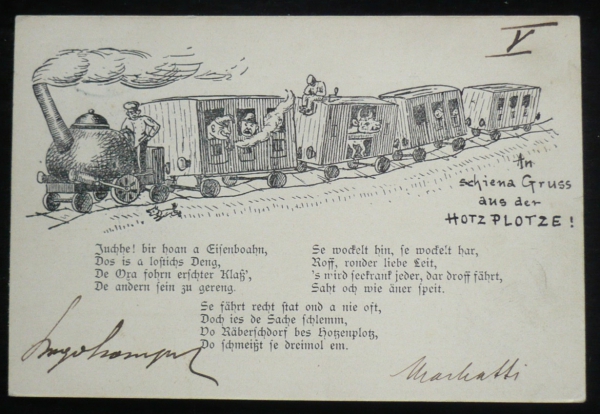 V
An
schiena Gruss
aus der
HOTZPLOTZE!
Juchhe! bir hoan a Eisenboahn,
Dos is a lostichs Deng,
De Ora fohrn erschter Klaß',
De andern sein zu gereng.
Se wockelt hin, se wockelt har,
Roff, ronder liebe Leit,
's wird seekrank jeder, dar droff fährt,
Saht och wie äner speit.
Se fährt recht stat ond a nie oft,
Doch ies de Sache schlemm,
Vo Räberschdorf bes Hotzenplotz,
Do schmeißt se dreimol em.